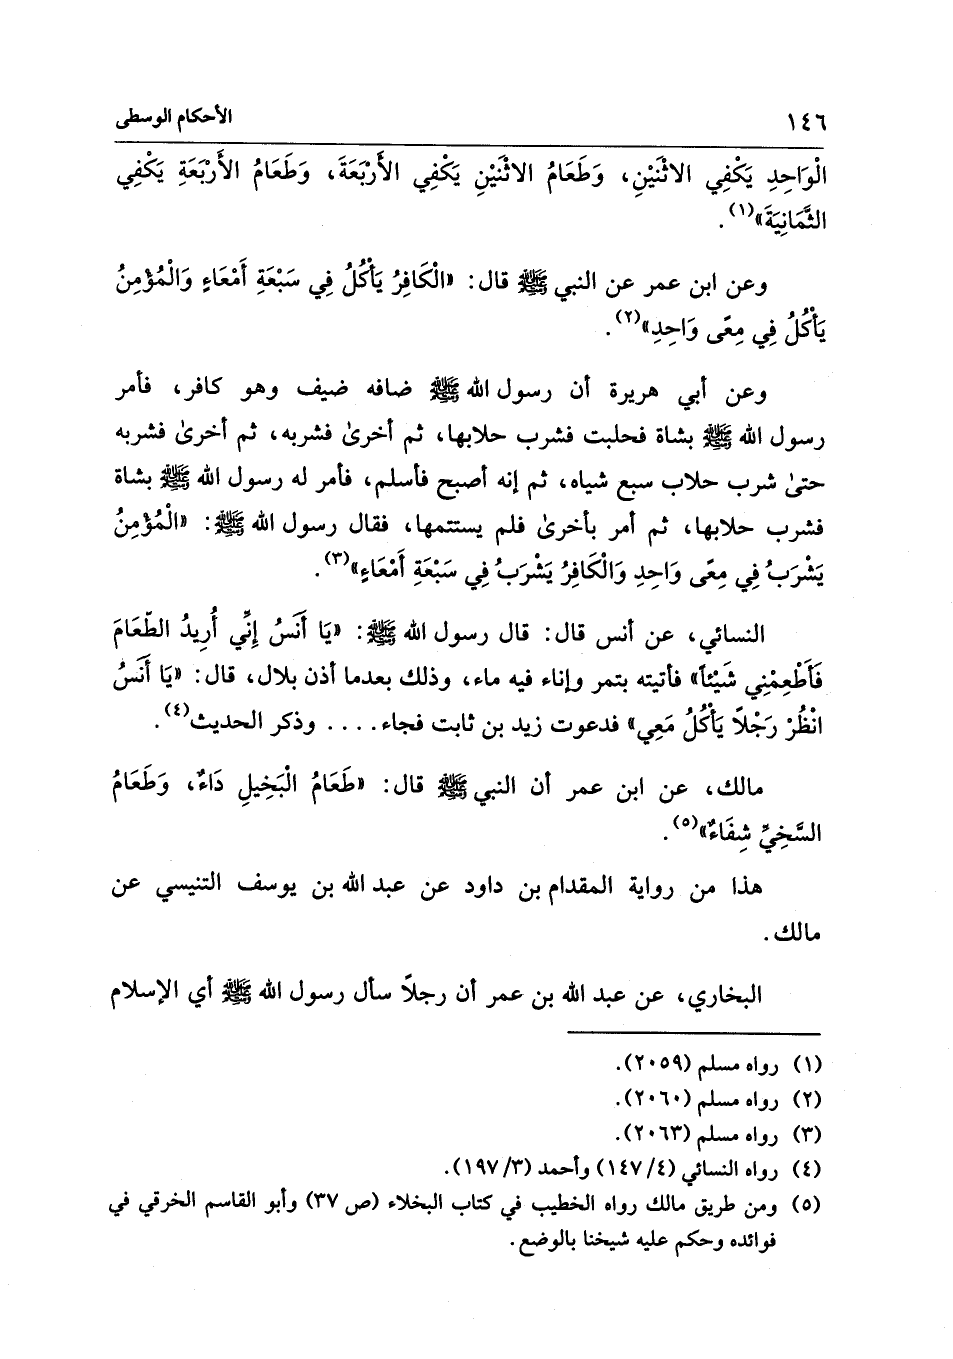 ١٤٦ الأحكام الوسطى
الْوَاحِدِ يَكْفِي الاثْنَيْنِ، وَطَعَامُ الاثْنَيْنِ يَكْفِي الأَرْبَعَةَ، وَطَعَامُ الأَرْبَعَةِ يَكْفِي
الثَّمَانِيَةَ»(١).
وعن ابن عمر عن النبي ﷺ قال: «الْكَافِرُ يَأْكُلُ فِي سَبْعَةِ أَمْعَاءٍ وَالْمُؤْمِنُ
يَأْكُلُ فِي مِعًى وَاحِدِ»(٢).
وعن أبي هريرة أن رسول الله ﷺ ضافه ضيف وهو كافر، فأمر
رسول الله ﷺ بشاة فحلبت فشرب حلابها، ثم أخرىٰ فشربه، ثم أخرىٰ فشربه
حتىٰ شرب حلاب سبع شياه، ثم إنه أصبح فأسلم، فأمر له رسول الله ﷺ بشاة
فشرب حلابها، ثم أمر بأخرىٰ فلم يستتمها، فقال رسول الله ﷺ: «الْمُؤْمِنُ
يَشْرَبُ فِي مِعًى وَاحِدِ وَالْكَافِرُ يَشْرَبُ فِي سَبْعَةِ أَمْعَاءٍ»(٣).
النسائي، عن أنس قال: قال رسول الله ﷺ: «يَا أَنَسُ إِنِّي أُرِيدُ الطَّعَامَ
فَأَطْعِمْنِي شَيْئاً» فأتيته بتمر وإناء فيه ماء، وذلك بعدما أذن بلال، قال: «يَا أَنَسُ
انْظُرْ رَجْلاً يَأْكُلُ مَعِي» فدعوت زيد بن ثابت فجاء.... وذكر الحديث(٤).
مالك، عن ابن عمر أن النبي ﷺ قال: «طَعَامُ الْبَخِيلِ دَاءٌ، وَطَعَامُ
السَّخِيِّ شِفَاءٌ»(٥).
هذا من رواية المقدام بن داود عن عبد الله بن يوسف التنيسي عن
مالك.
البخاري، عن عبد الله بن عمر أن رجلاً سأل رسول الله ﷺ أي الإسلام
(١) رواه مسلم (٢٠٥٩).
(٢) رواه مسلم (٢٠٦٠).
(٣) رواه مسلم (٢٠٦٣).
(٤) رواه النسائي (٤/١٤٧) وأحمد (٣/١٩٧).
(٥) ومن طريق مالك رواه الخطيب في كتاب البخلاء (ص ٣٧) وأبو القاسم الخرقي في
فوائده وحكم عليه شيخنا بالوضع.